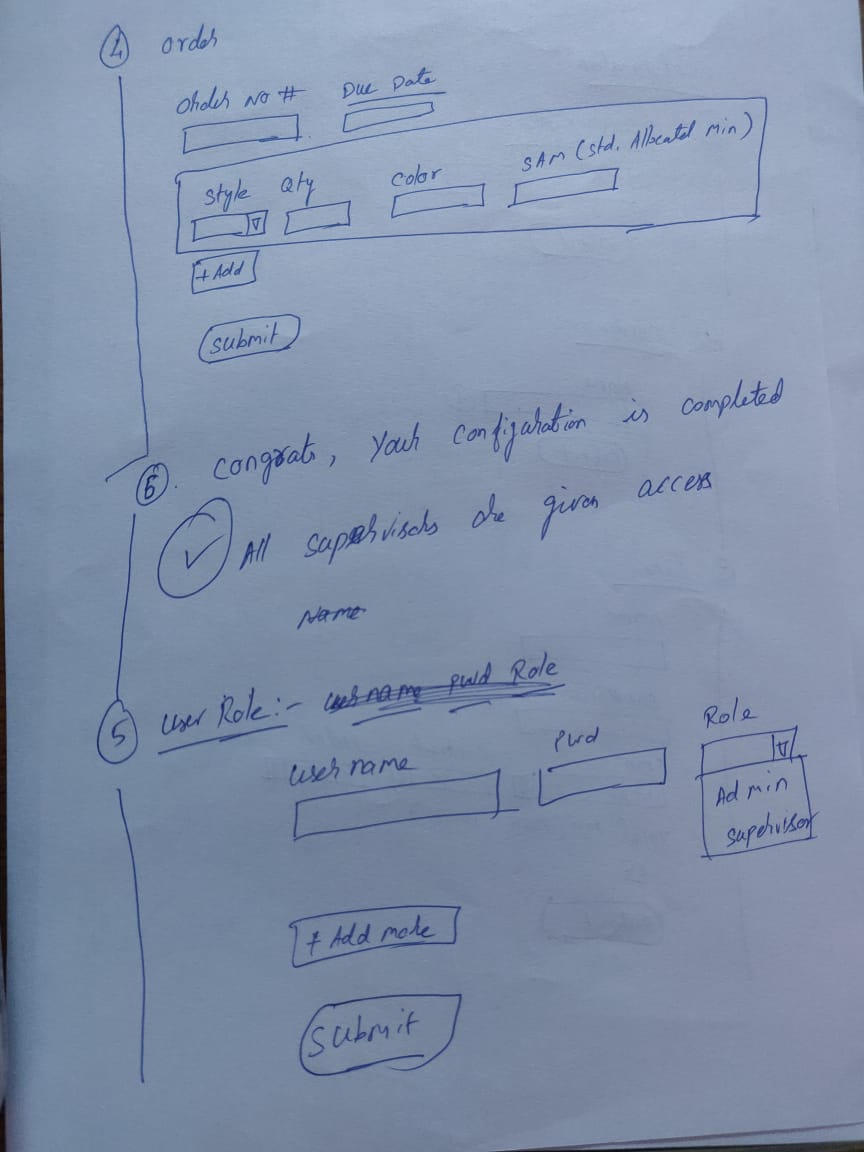 4 Order
Order No # Due Date
Style Qty Color SAM (Std. Allocated Min)
+ Add
Submit
6. Congrats, Your configuration is completed
All supervisors are given access
Name
5 User Role:- User name Pwd Role
User name Pwd Role
Admin
Supervisor
+ Add more
Submit